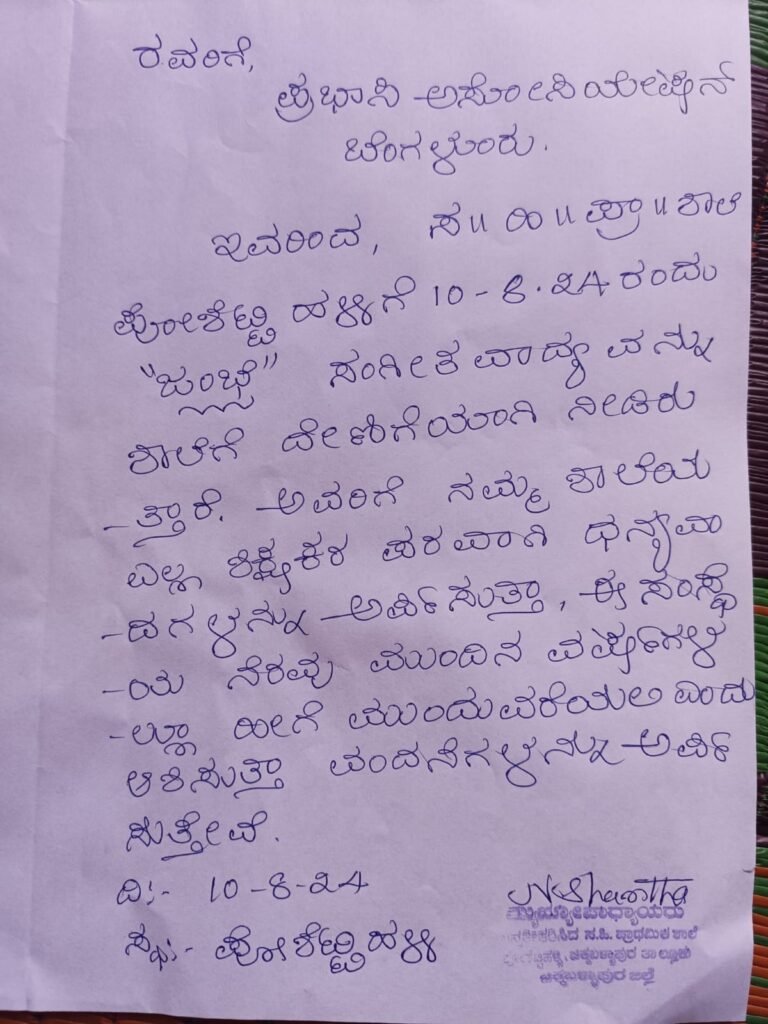 ರವರಿಗೆ,
ಪ್ರಭಾಸಿ ಅಸೋಸಿಯೇಷನ್
ಬೆಂಗಳೂರು.
ಇವರಿಂದ, ಸ॥ ಹಿ॥ ಪ್ರಾ॥ ಶಾಲೆ
ಪೋಶೆಟ್ಟಿಹಳ್ಳಿಗೆ 10-8-24ರಂದು
"ಜಂಬೆ" ಸಂಗೀತ ವಾದ್ಯವನ್ನು
ಶಾಲೆಗೆ ದೇಣಿಗೆಯಾಗಿ ನೀಡಿರು
-ತ್ತಾರೆ. ಅವರಿಗೆ ನಮ್ಮ ಶಾಲೆಯ
ಎಲ್ಲಾ ಶಿಕ್ಷಕರ ಪರವಾಗಿ ಧನ್ಯವಾ
-ದಗಳನ್ನು ಅರ್ಪಿಸುತ್ತಾ, ಈ ಸಂಸ್ಥೆ
-ಯ ನೆರವು ಮುಂದಿನ ವರ್ಷಗಳ
-ಲ್ಲೂ ಹೀಗೆ ಮುಂದುವರೆಯಲಿ ಎಂದು
ಆಶಿಸುತ್ತಾ ವಂದನೆಗಳನ್ನು ಅರ್ಪಿ
ಸುತ್ತೇವೆ.
ದಿ:- 10-8-24
ಸ್ಥಳ:- ಪೋಶೆಟ್ಟಿಹಳ್ಳಿ
ಮುಖ್ಯೋಪಾಧ್ಯಾಯರು
ಸ.ಹಿ. ಪ್ರಾಥಮಿಕ ಶಾಲೆ
ಚಿಕ್ಕಬಳ್ಳಾಪುರ ತಾಲ್ಲೂಕು
ಚಿಕ್ಕಬಳ್ಳಾಪುರ ಜಿಲ್ಲೆ